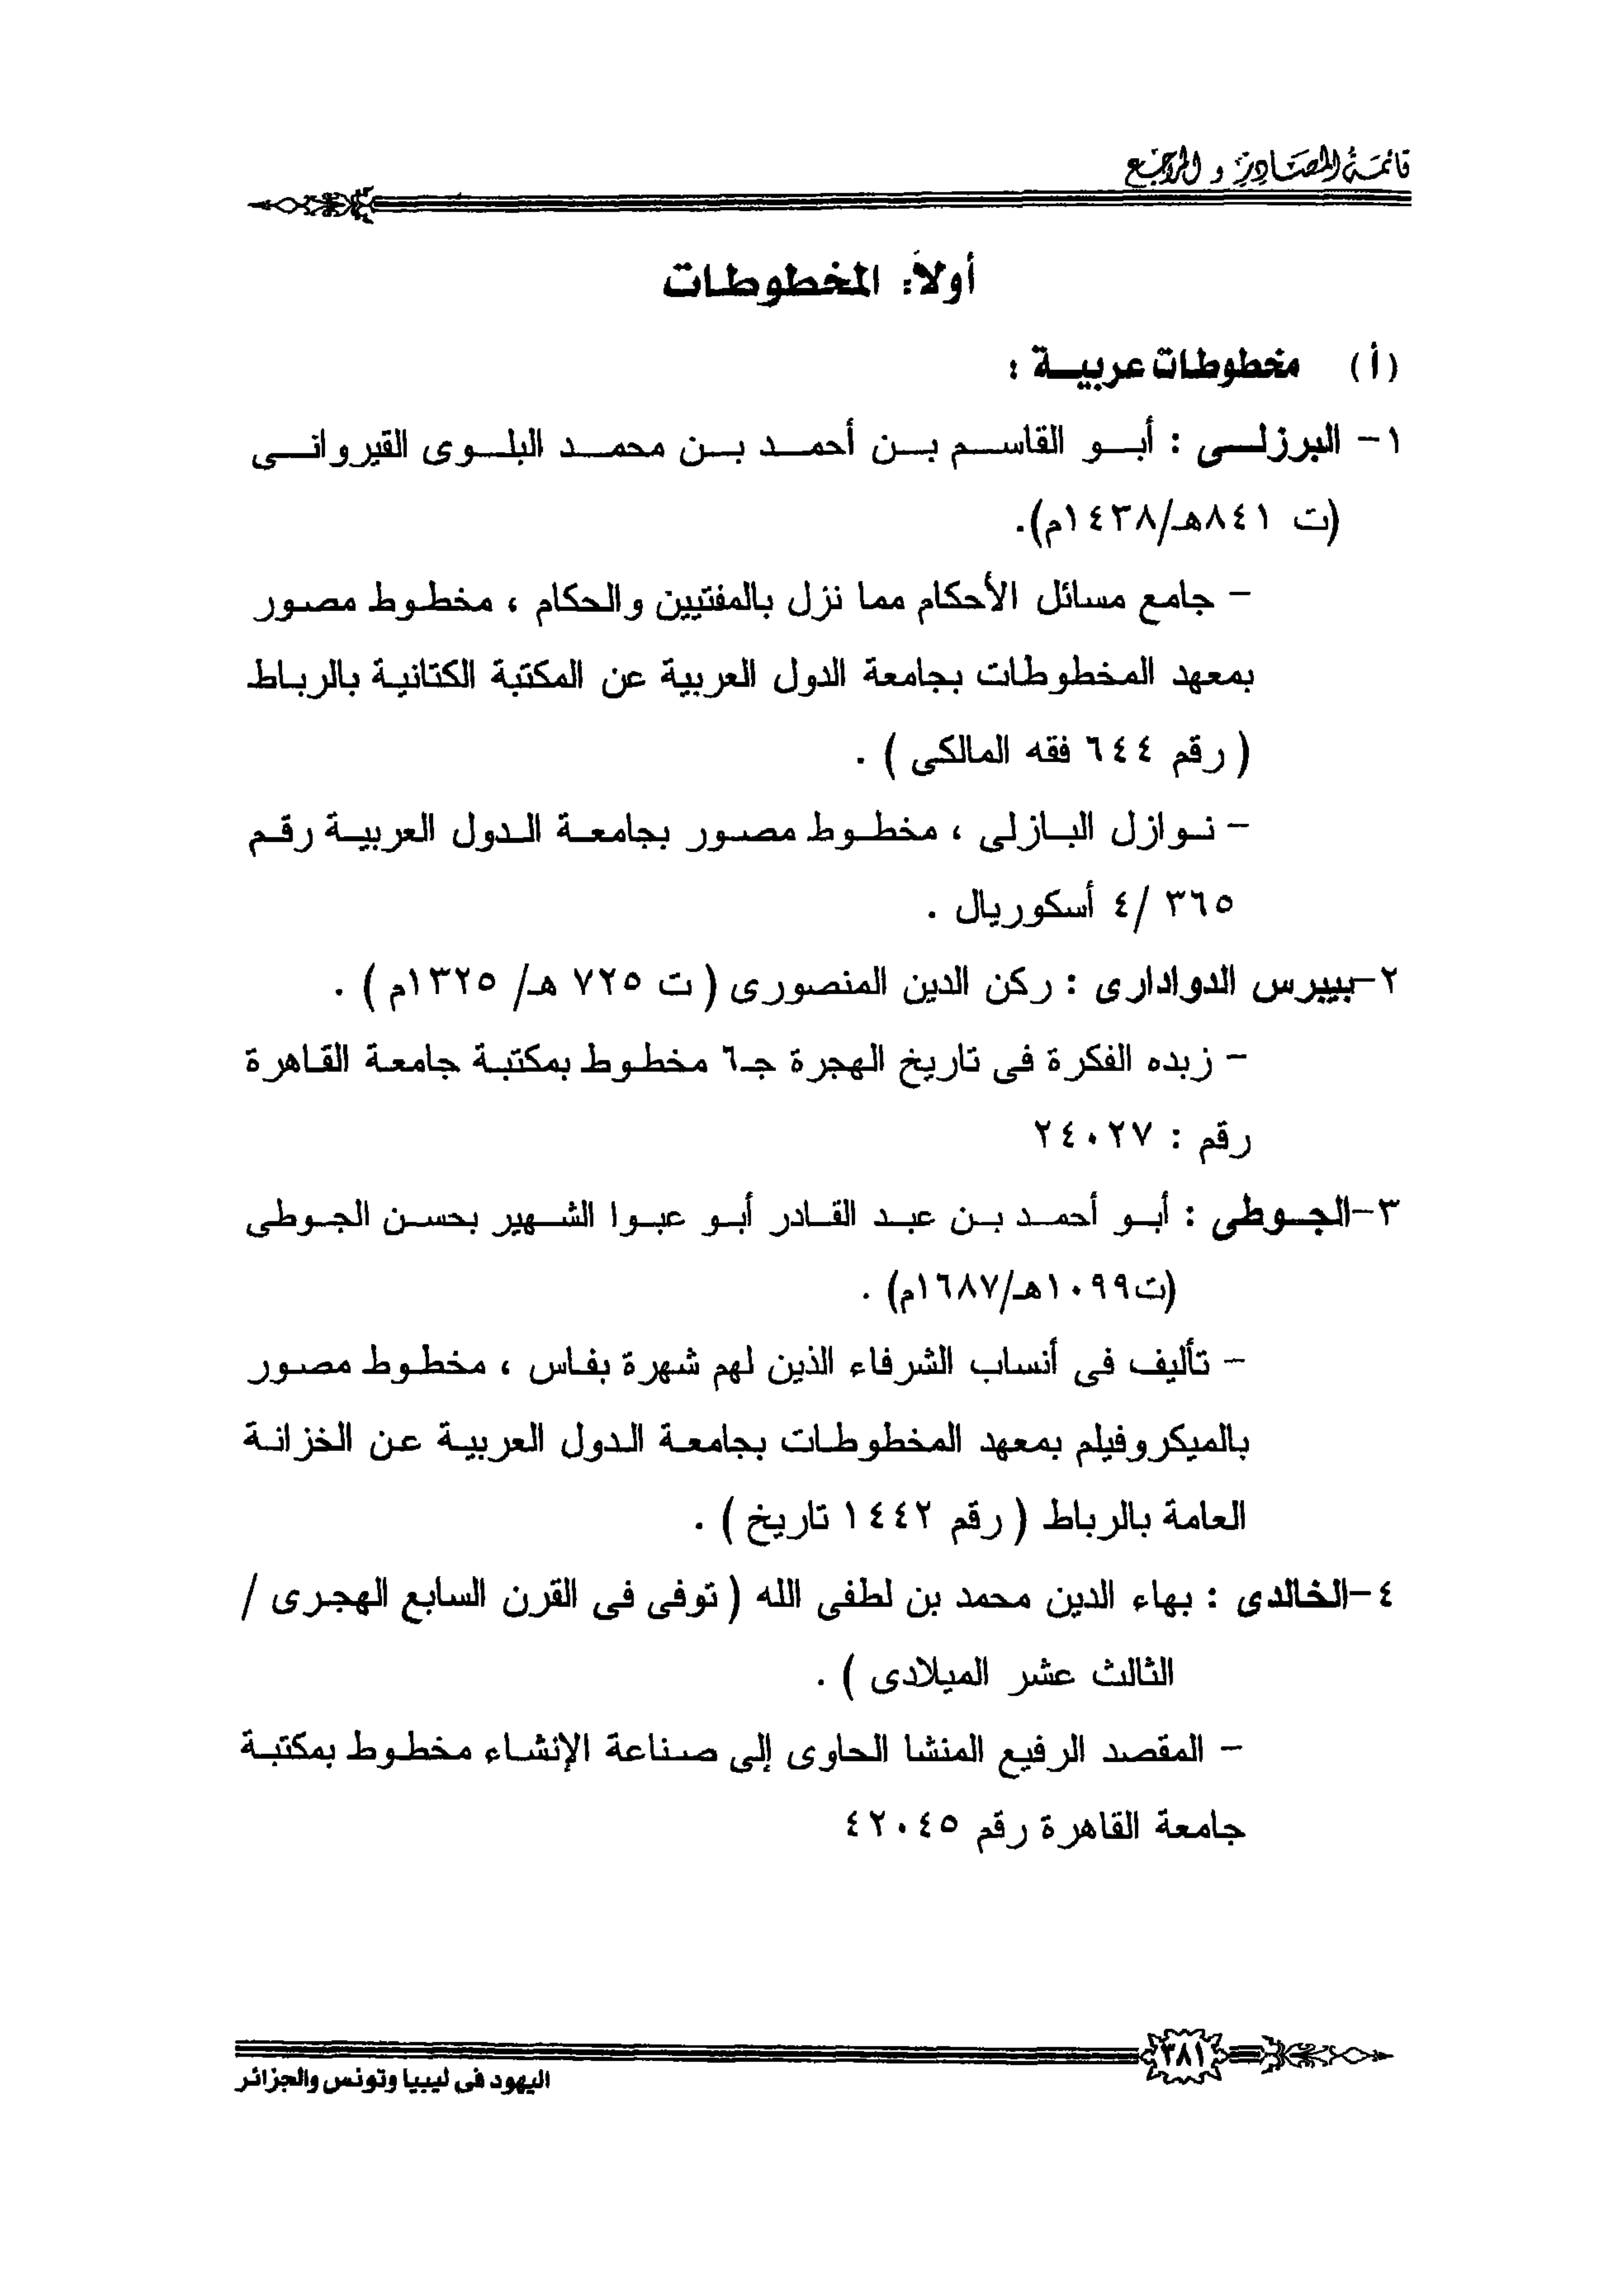 قائمة المصادر و المراجع
أولاً: المخطوطات
(أ) مخطوطات عربية :
١- البرزلى : أبو القاسم بن أحمد بن محمد البلوى القيروانى
(ت ٨٤١هـ/١٤٣٨م).
- جامع مسائل الأحكام مما نزل بالمفتيين والحكام ، مخطوط مصور
بمعهد المخطوطات بجامعة الدول العربية عن المكتبة الكتانية بالرباط
( رقم ٦٤٤ فقه المالكى ) .
- نوازل البازلى ، مخطوط مصور بجامعة الدول العربية رقم
٣٦٥ /٤ أسكوريال .
٢-بيبرس الدوادارى : ركن الدين المنصورى ( ت ٧٢٥ هـ/ ١٣٢٥م ) .
- زبده الفكرة فى تاريخ الهجرة جـ٦ مخطوط بمكتبة جامعة القاهرة
رقم : ٢٤٠٢٧
٣-الجوطى : أبو أحمد بن عبد القادر أبو عبوا الشهير بحسن الجوطى
(ت١٠٩٩هـ/١٦٨٧م) .
- تأليف فى أنساب الشرفاء الذين لهم شهرة بفاس ، مخطوط مصور
بالميكروفيلم بمعهد المخطوطات بجامعة الدول العربية عن الخزانة
العامة بالرباط ( رقم ١٤٤٢ تاريخ ) .
٤-الخالدى : بهاء الدين محمد بن لطفى الله ( توفى فى القرن السابع الهجرى /
الثالث عشر الميلادى ) .
- المقصد الرفيع المنشا الحاوى إلى صناعة الإنشاء مخطوط بمكتبة
جامعة القاهرة رقم ٤٢٠٤٥
٣٨١
اليهود فى ليبيا وتونس والجزائر